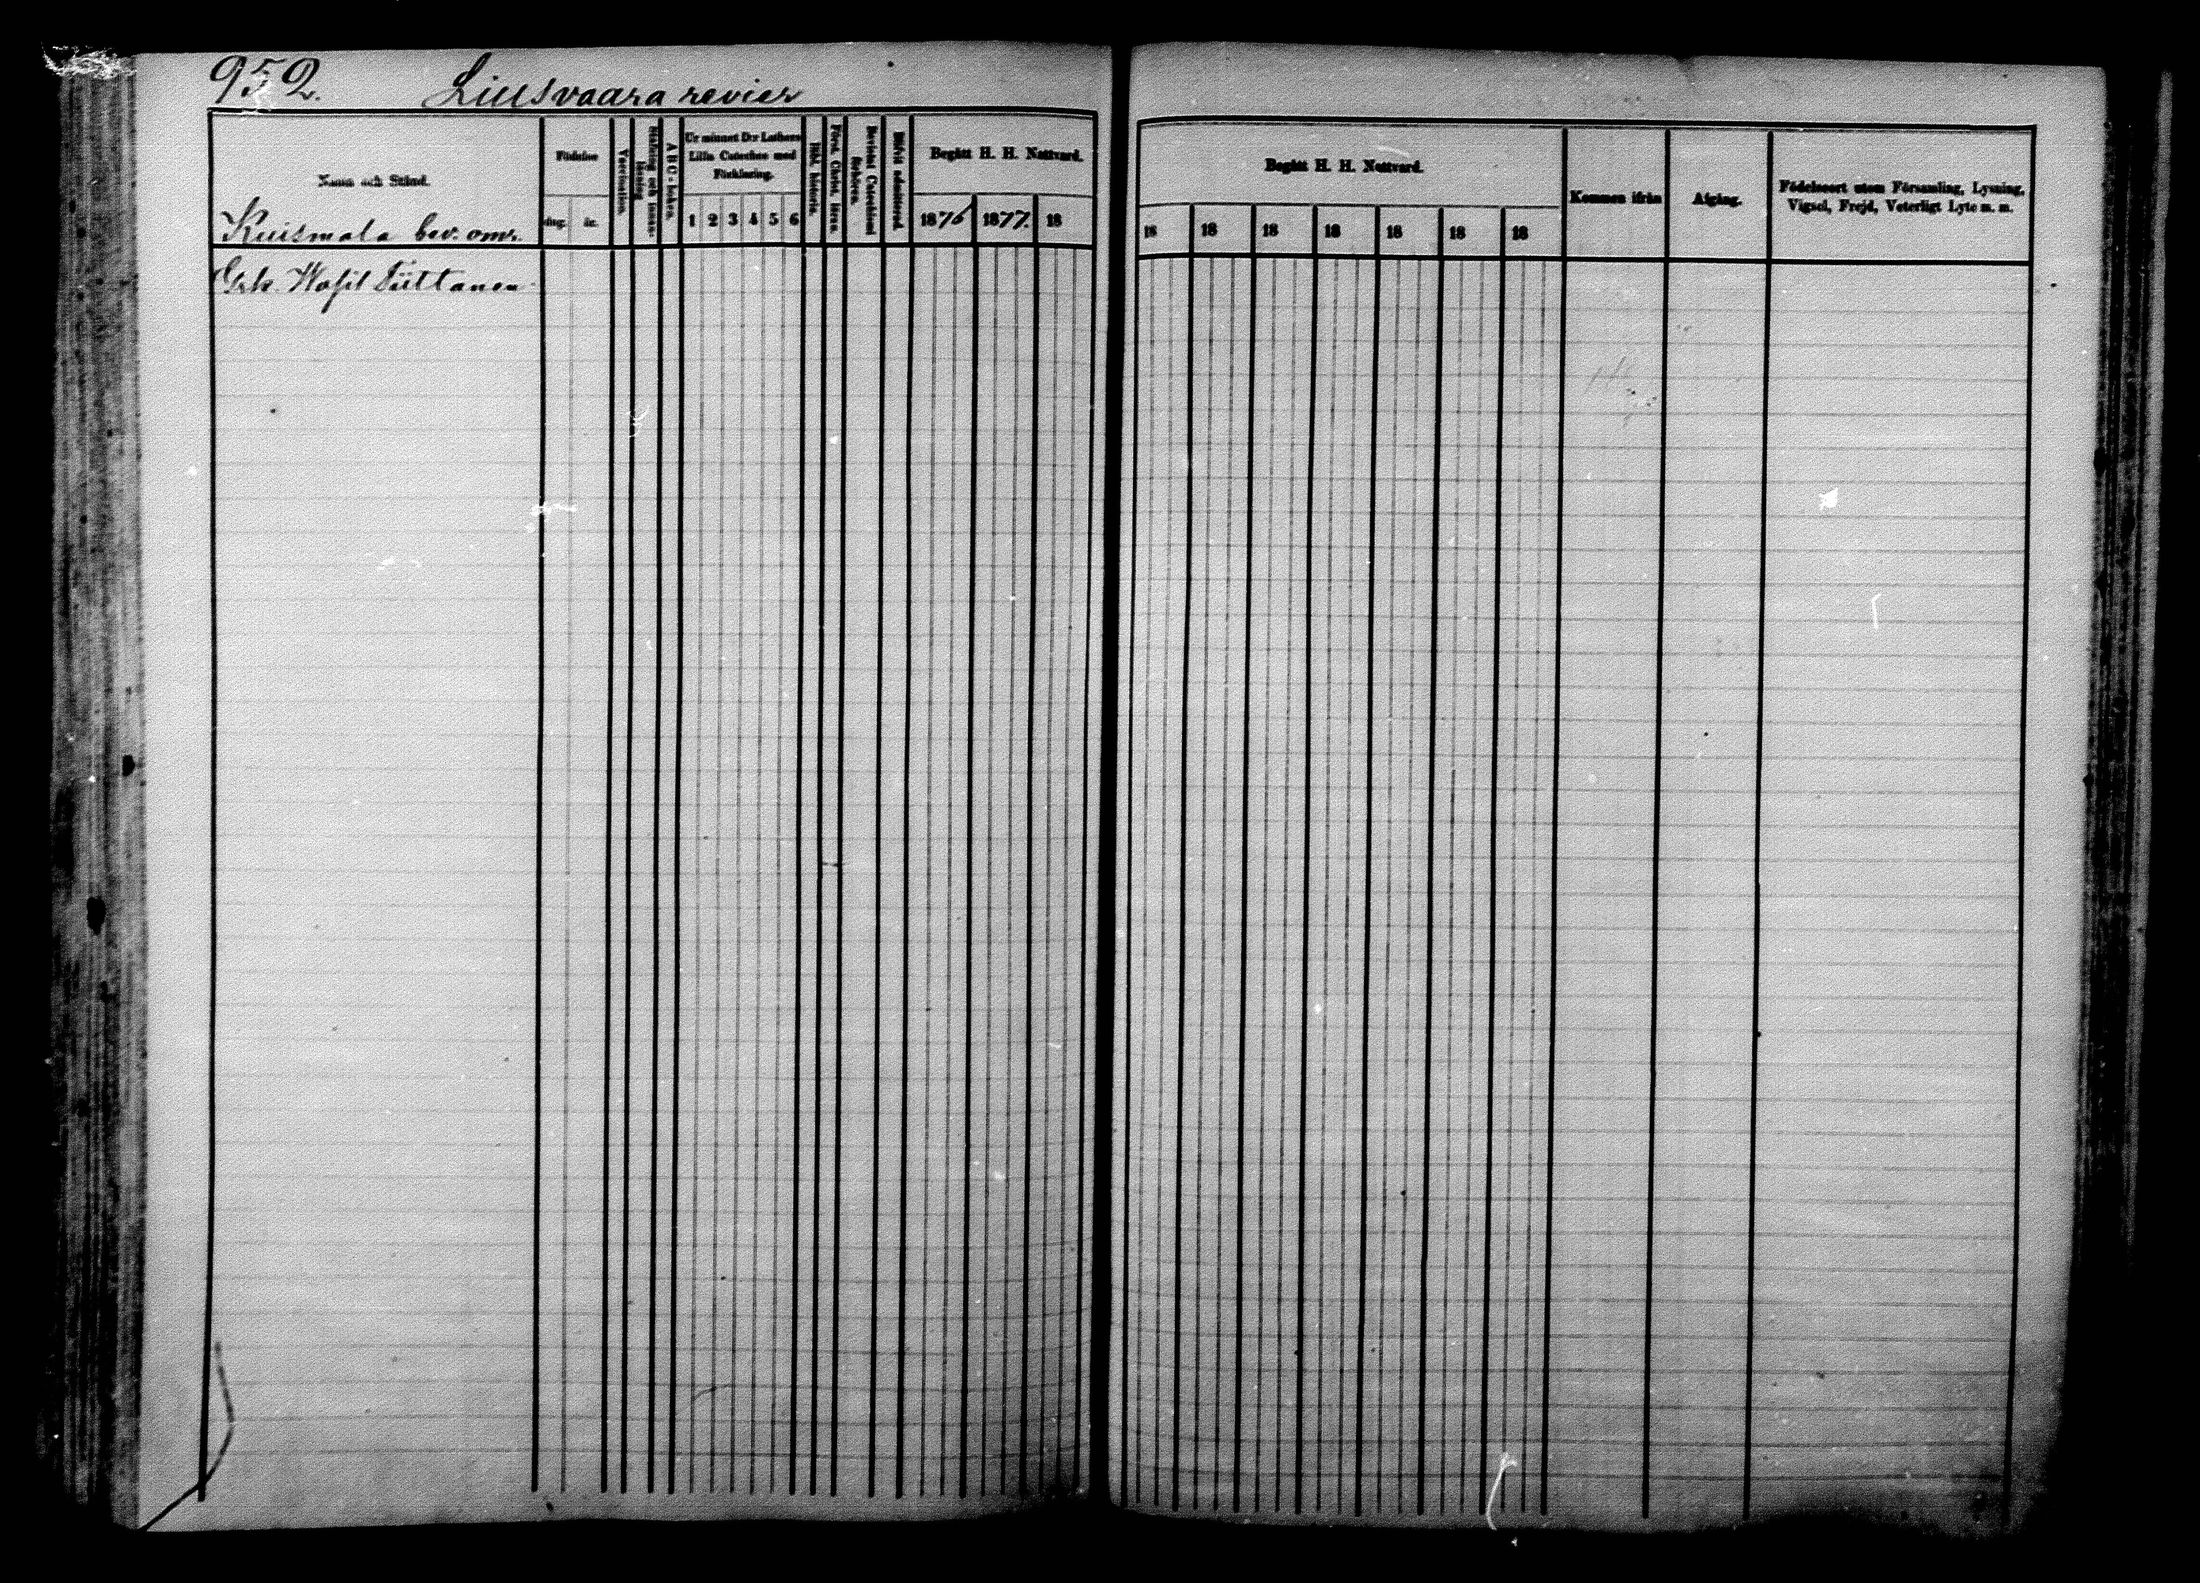 952. Liusvaara revier
Namn och Stånd.
Kuismala bev. omr.
Födelse
dag. år.
Vaccination.
Stafning och innan-
läsning
A B C-boken.
Ur minnet Dr Luthers
Lilla Cateches med
Förklaring.
1 2 3 4 5 6
Bibl. historia.
Först. Christ. läran.
Bevistat Catechismi
förhören.
Blifvit admitterad.
Begått H. H. Nattvard.
1876 1877. 18
Grk. Wasil Tiittanen
Begått H. H. Nattvard.
18 18 18 18 18 18 18
Kommen ifrån
Afgång.
Födelseort utom Församling, Lysning,
Vigsel, Frejd, Veterligt Lyte m. m.